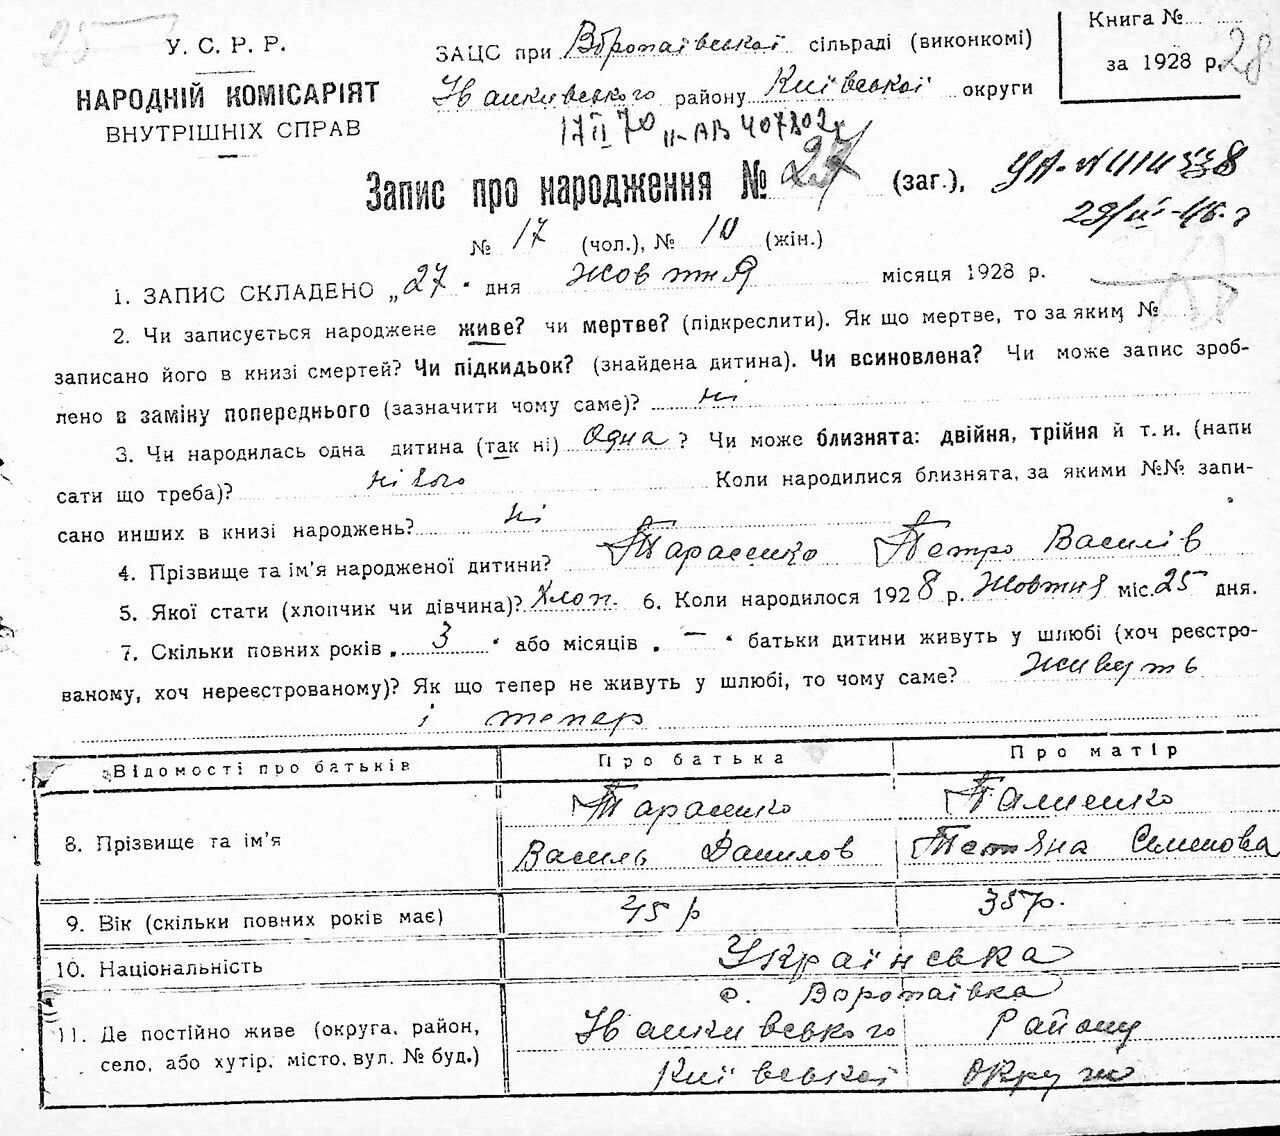 25
У. С. Р. Р.
НАРОДНІЙ КОМІСАРІЯТ
ВНУТРІШНІХ СПРАВ
ЗАЦС при Воропаївської сільраді (виконкомі)
Іванківського району Київської округи
Книга №
за 1928 р. 28
17 II 70 II-АВ 407802
Запис про народження № 27 (заг.),
29/III-46 г
№ 17 (чол.), № 10 (жін.)
1. ЗАПИС СКЛАДЕНО „27" дня жовтня місяця 1928 р.
2. Чи записується народжене живе? чи мертве? (підкреслити). Як що мертве, то за яким №
записано його в книзі смертей? Чи підкидьок? (знайдена дитина). Чи всиновлена? Чи може запис зроб-
лено в заміну попереднього (зазначити чому саме)? ні
3. Чи народилась одна дитина (так ні) одна? Чи може близнята: двійня, трійня й т. и. (напи
сати що треба)? нікого Коли народилися близнята, за якими №№ запи-
сано инших в книзі народжень? ні
4. Прізвище та ім'я народженої дитини? Тарасенко Петро Василів
5. Якої стати (хлопчик чи дівчина)? Хлоп. 6. Коли народилося 1928 р. Жовтня міс. 25 дня.
7. Скільки повних років „ 3 " або місяців „ — " батьки дитини живуть у шлюбі (хоч реєстро-
ваному, хоч нереєстрованому)? Як що тепер не живуть у шлюбі, то чому саме? живуть
і тепер
Відомості про батьків Про батька Про матір
8. Прізвище та ім'я
Тарасенко
Василь Данилов
Палиенко
Тетяна Семенова
9. Вік (скільки повних років має) 45 р 35 р.
10. Національність Українська
11. Де постійно живе (округа, район,
село, або хутір, місто, вул. № буд.)
с. Воропаївка
Іванківського Району
Київської округи